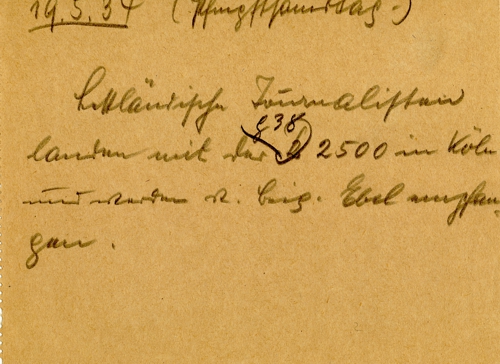 19.5.34 (Pfingstsamstag.)
Lettländische Journalisten
g 38
landen mit der D 2500 in Köln
und werden v. Beig. Ebel empfan-
gen.